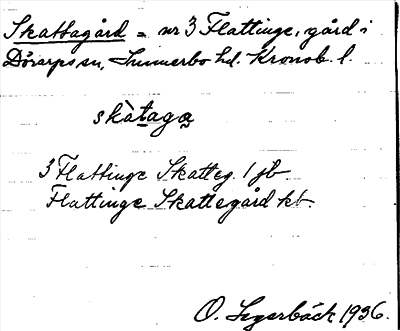 Skattagård = nr 3 Flattinge, gård i
Dörarps sn, Sunnerbo hd. Kronob. l.
skàtaga
3 Flattinge Skatteg. 1 jb
Flattinge Skattegård kb.
O. Segerbäck 1936.